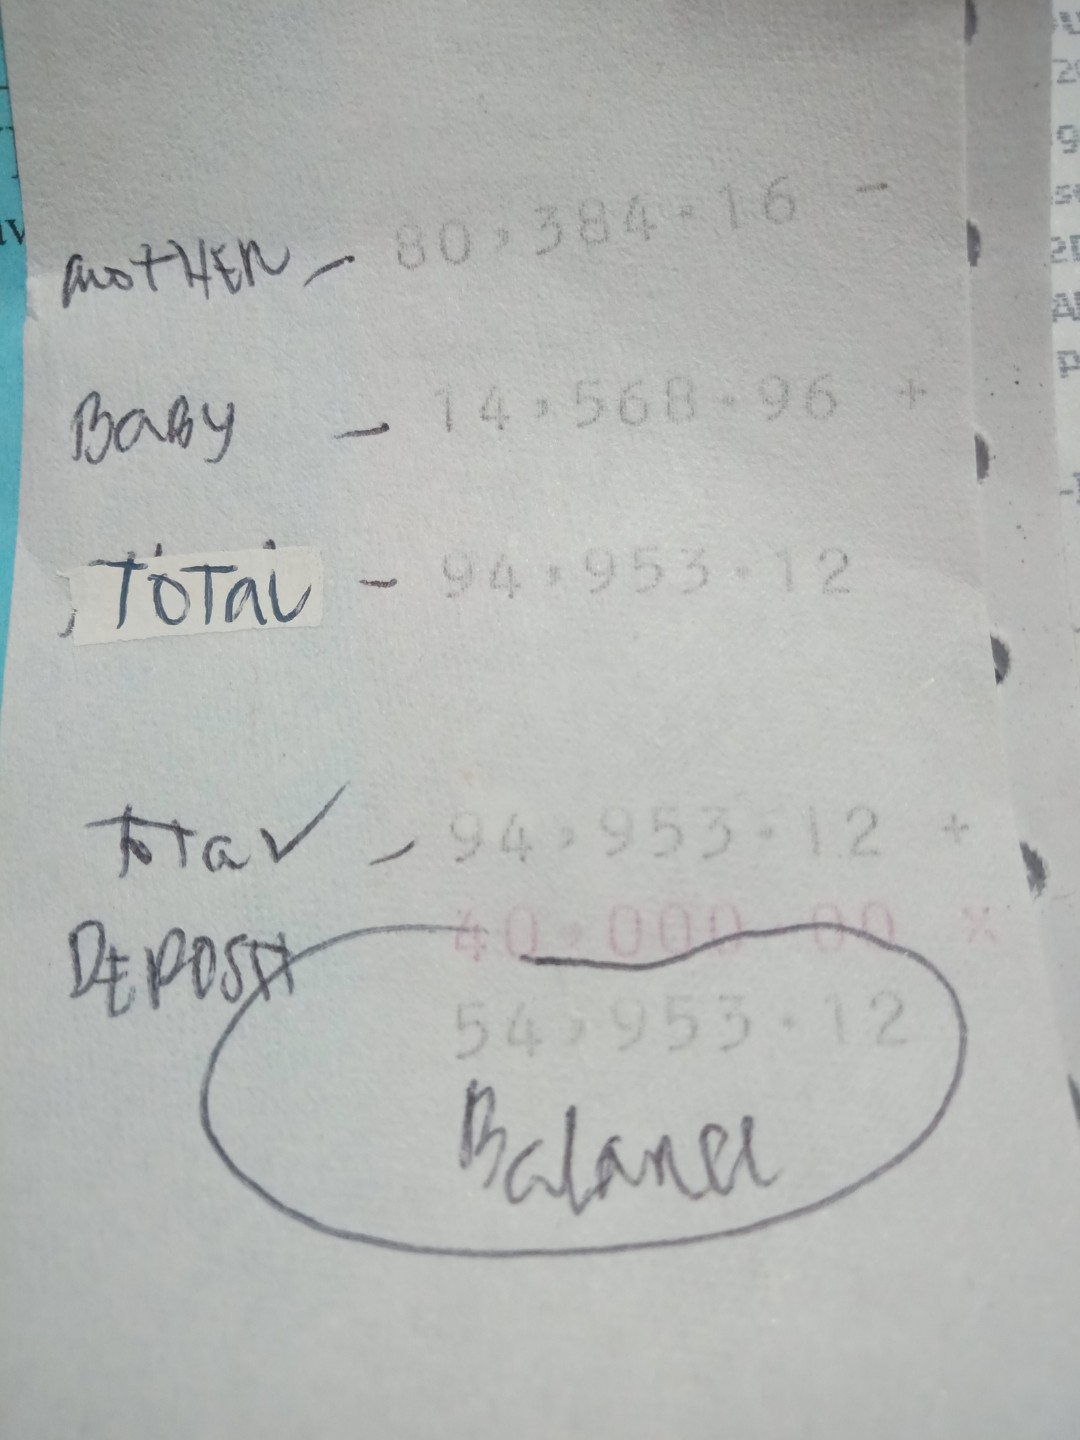 MOTHER - 80,384.16 -
BABY - 14,568.96 +
TOTAL - 94,953.12
TOTAL - 94,953.12 +
DEPOSIT 40,000.00 *
54,953.12
Balance